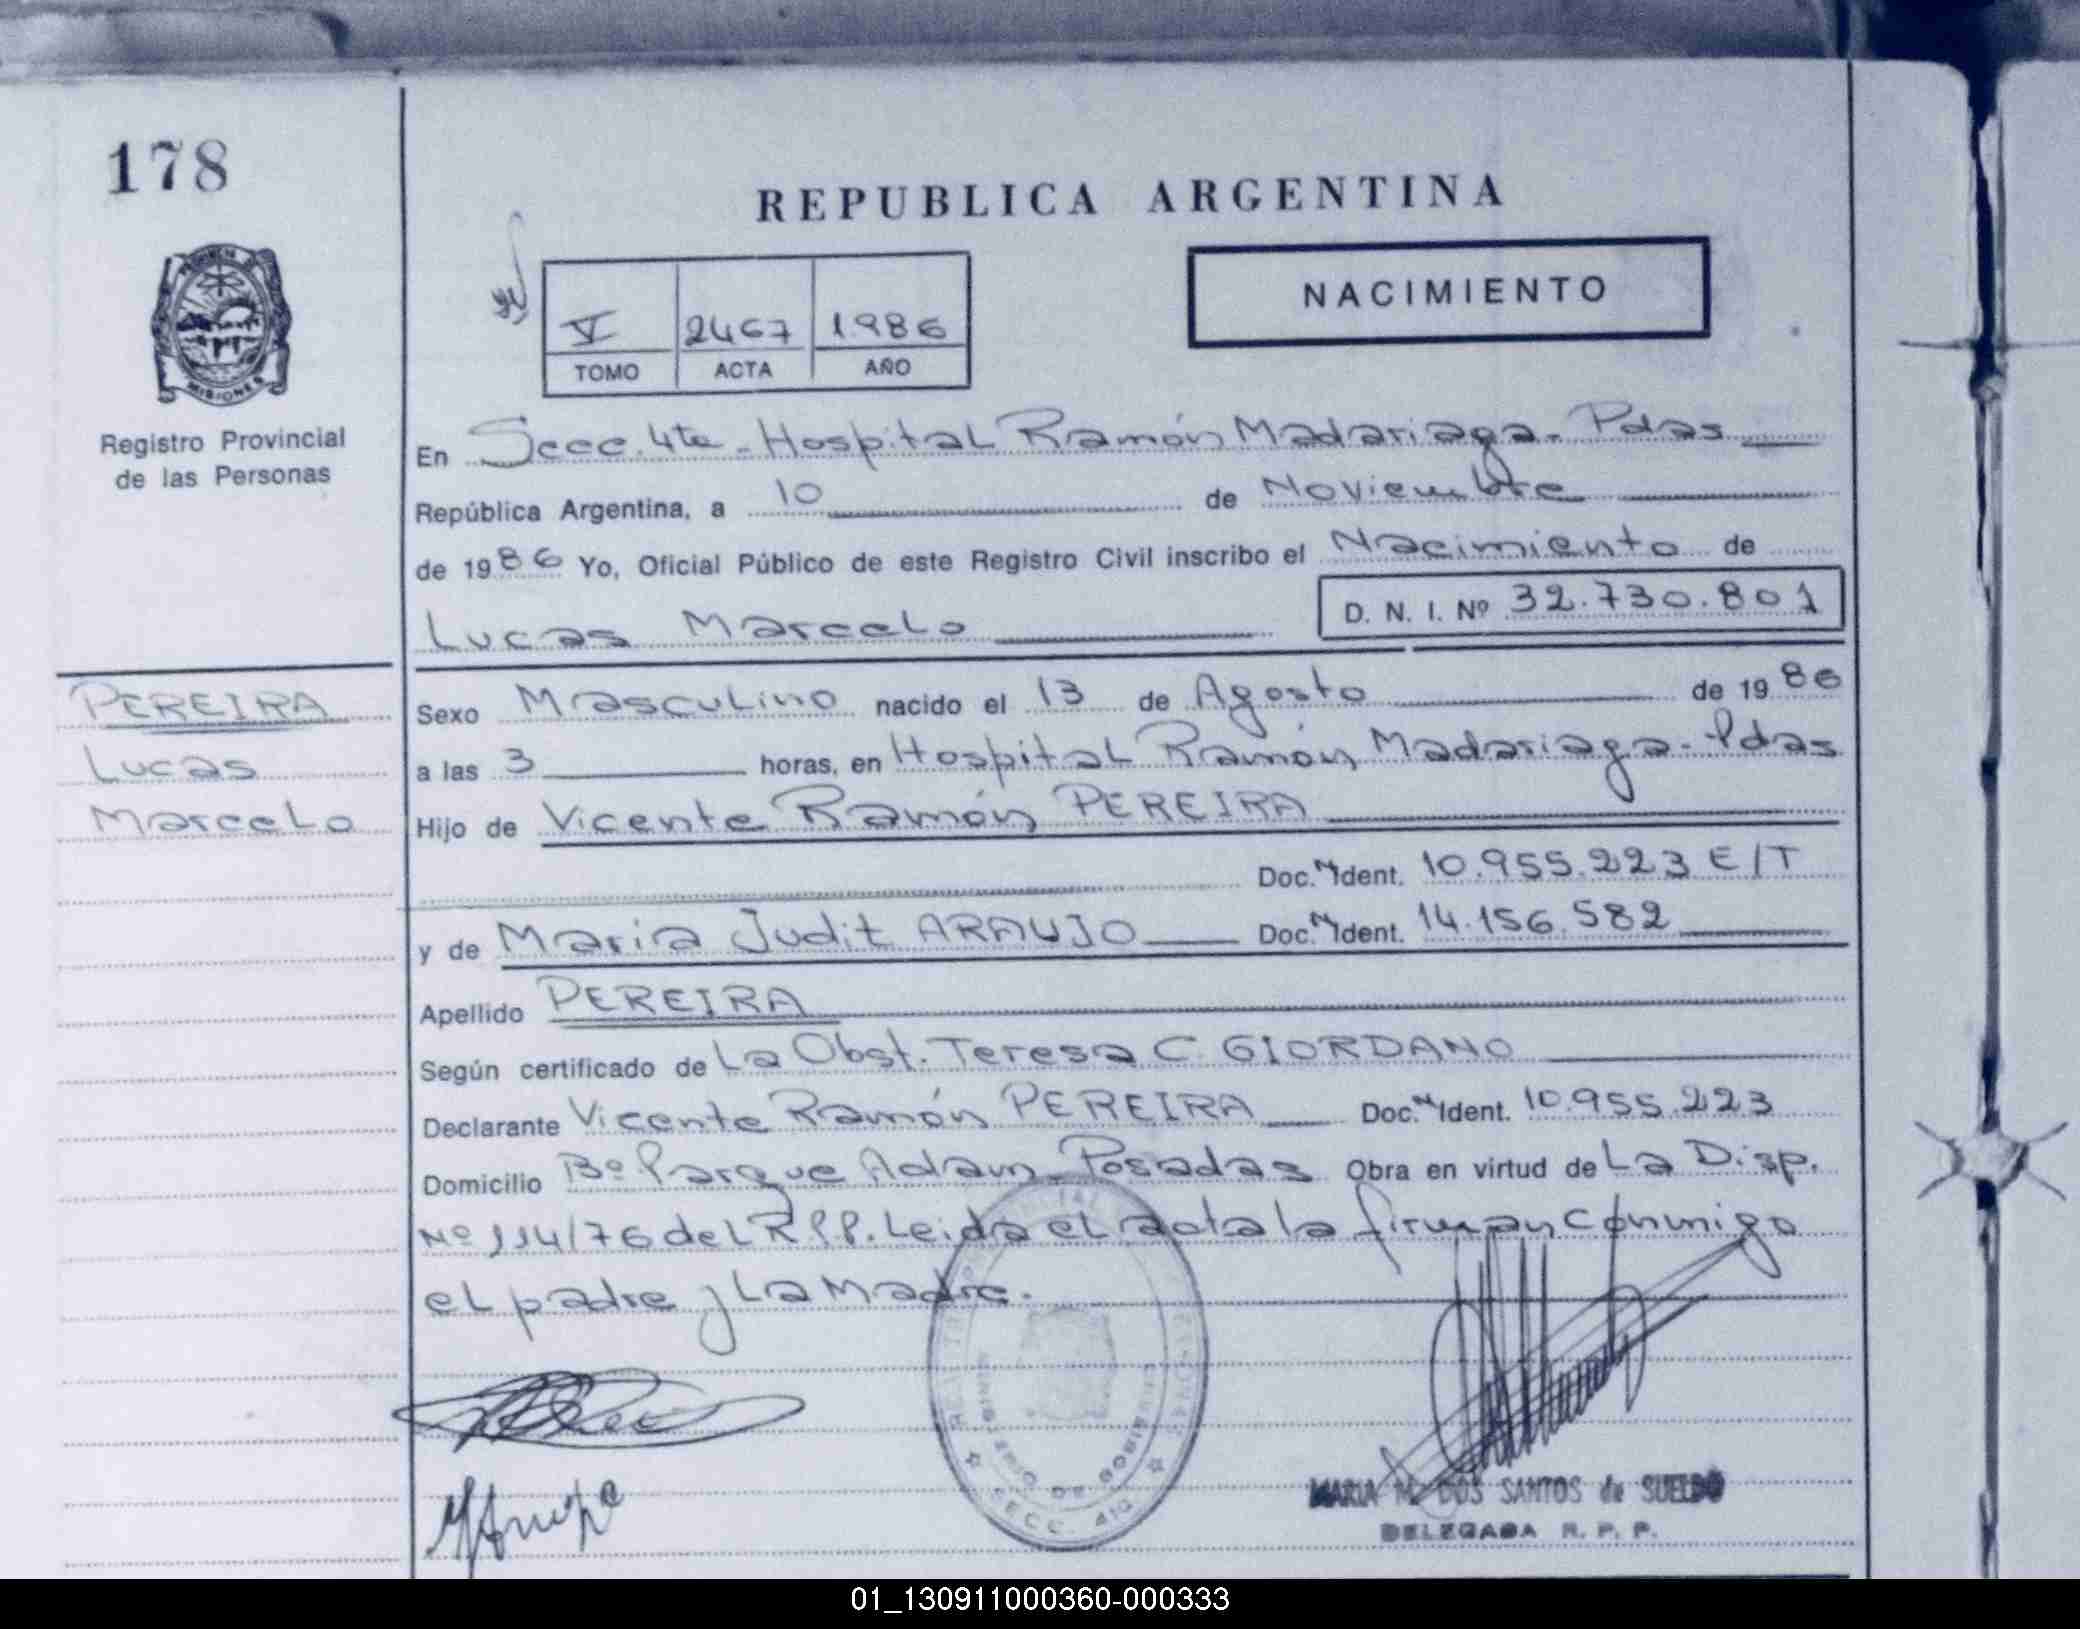 178
REPUBLICA ARGENTINA
NACIMIENTO
V 2467 1986
TOMO ACTA AÑO
PROVINCIA DE
MISIONES
Registro Provincial
de las Personas
En Secc. 4ta - Hospital Ramón Madariaga - Pdas
República Argentina, a 10 de Noviembre
de 1986 Yo, Oficial Público de este Registro Civil inscribo el Nacimiento de
Lucas Marcelo D. N. I. Nº 32.730.801
PEREIRA
Lucas
Marcelo
Sexo Masculino nacido el 13 de Agosto de 1986
a las 3 horas, en Hospital Ramón Madariaga - Pdas
Hijo de Vicente Ramón PEREIRA
Doc. N Ident. 10.955.223 E/T
y de Maria Judit ARAUJO Doc. N Ident. 14.156.582
Apellido PEREIRA
Según certificado de La Obst. Teresa C. GIORDANO
Declarante Vicente Ramón PEREIRA Doc. N Ident. 10.955.223
Domicilio Bº Parque Adam - Posadas Obra en virtud de La Disp.
Nº 114/76 del R.P.P. Leida el acta la firman conmigo
el padre y La Madre.
MINISTERIO DE GOBIERNO
SECC. 4ta
MARIA M. DOS SANTOS de SUELDO
DELEGADA R. P. P.
01_130911000360-000333